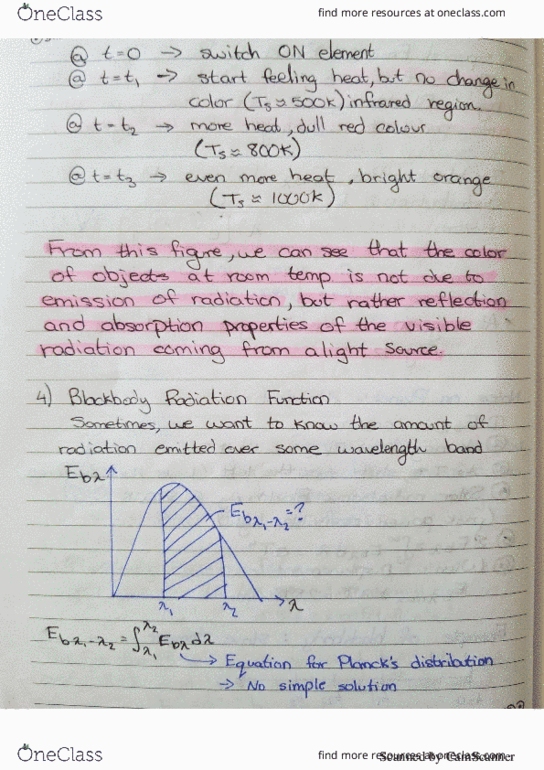 OneClass
find more resources at oneclass.com
@ t=0 → switch ON element
@ t=t₁ → start feeling heat, but no change in
color (Ts ≈ 500K) infrared region.
@ t=t₂ → more heat, dull red colour
(Ts ≈ 800K)
@ t=t₃ → even more heat, bright orange
(Ts ≈ 1000K)
From this figure, we can see that the color
of objects at room temp is not due to
emission of radiation, but rather reflection
and absorption properties of the visible
radiation coming from a light source.
4) Blackbody Radiation Function
Sometimes, we want to know the amount of
radiation emitted over some wavelength band
Ebλ
Ebλ₁-λ₂=?
λ₁ λ₂ λ
Ebλ₁-λ₂ = ∫λ₁^λ₂ Ebλ dλ
→ Equation for Planck's distribution
→ No simple solution
OneClass
find more resources at oneclass.com
Scanned by CamScanner